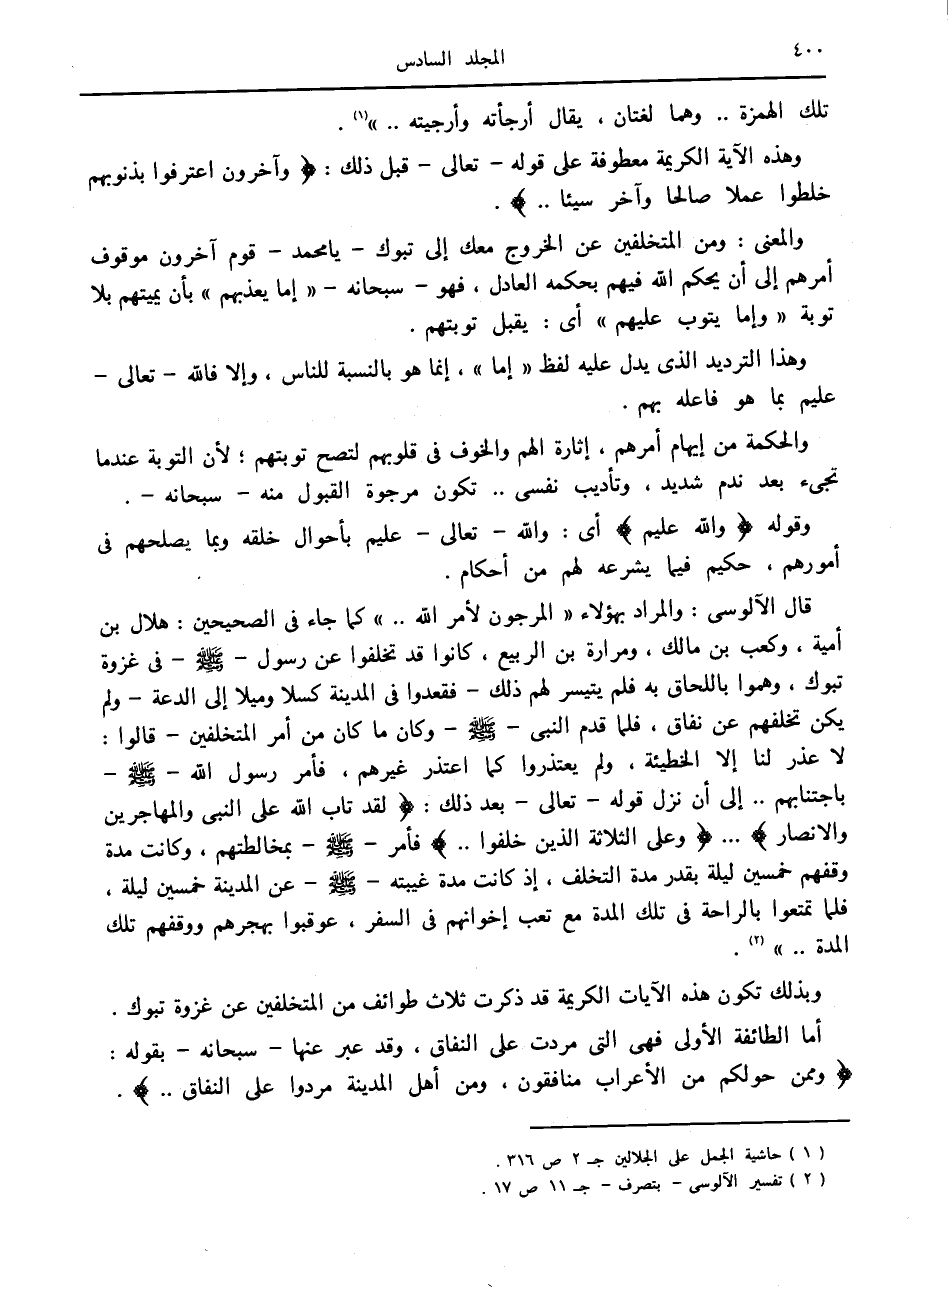 ٤٠٠
المجلد السادس
تلك الهمزة .. وهما لغتان ، يقال أرجأته وأرجيته .. »(١) .
وهذه الآية الكريمة معطوفة على قوله – تعالى – قبل ذلك : ﴿ وآخرون اعترفوا بذنوبهم
خلطوا عملا صالحا وآخر سيئا .. ﴾ .
والمعنى : ومن المتخلفين عن الخروج معك إلى تبوك – يامحمد – قوم آخرون موقوف
أمرهم إلى أن يحكم الله فيهم بحكمه العادل ، فهو – سبحانه – « إما يعذبهم » بأن يميتهم بلا
توبة « وإما يتوب عليهم » أى : يقبل توبتهم .
وهذا الترديد الذى يدل عليه لفظ « إما » ، إنما هو بالنسبة للناس ، وإلا فالله – تعالى –
عليم بما هو فاعله بهم .
والحكمة من إيهام أمرهم ، إثارة الهم والخوف فى قلوبهم لتصح توبتهم ؛ لأن التوبة عندما
تجىء بعد ندم شديد ، وتأديب نفسى .. تكون مرجوة القبول منه – سبحانه – .
وقوله ﴿ والله عليم ﴾ أى : والله – تعالى – عليم بأحوال خلقه وبما يصلحهم فى
أمورهم ، حكيم فيما يشرعه لهم من أحكام .
قال الآلوسى : والمراد بهؤلاء « المرجون لأمر الله .. » كما جاء فى الصحيحين : هلال بن
أمية ، وكعب بن مالك ، ومرارة بن الربيع ، كانوا قد تخلفوا عن رسول – ﷺ – فى غزوة
تبوك ، وهموا باللحاق به فلم يتيسر لهم ذلك – فقعدوا فى المدينة كسلا وميلا إلى الدعة – ولم
يكن تخلفهم عن نفاق ، فلما قدم النبى – ﷺ – وكان ما كان من أمر المتخلفين – قالوا :
لا عذر لنا إلا الخطيئة ، ولم يعتذروا كما اعتذر غيرهم ، فأمر رسول الله – ﷺ –
باجتنابهم .. إلى أن نزل قوله – تعالى – بعد ذلك : ﴿ لقد تاب الله على النبى والمهاجرين
والانصار ﴾ ... ﴿ وعلى الثلاثة الذين خلفوا .. ﴾ فأمر – ﷺ – بمخالطتهم ، وكانت مدة
وقفهم خمسين ليلة بقدر مدة التخلف ، إذ كانت مدة غيبته – ﷺ – عن المدينة خمسين ليلة ،
فلما تمتعوا بالراحة فى تلك المدة مع تعب إخوانهم فى السفر ، عوقبوا بهجرهم ووقفهم تلك
المدة .. » (٢) .
وبذلك تكون هذه الآيات الكريمة قد ذكرت ثلاث طوائف من المتخلفين عن غزوة تبوك .
أما الطائفة الأولى فهى التى مردت على النفاق ، وقد عبر عنها – سبحانه – بقوله :
﴿ وممن حولكم من الأعراب منافقون ، ومن أهل المدينة مردوا على النفاق .. ﴾ .
( ١ ) حاشية الجمل على الجلالين جـ ٢ ص ٣١٦ .
( ٢ ) تفسير الآلوسى – بتصرف – جـ ١١ ص ١٧ .